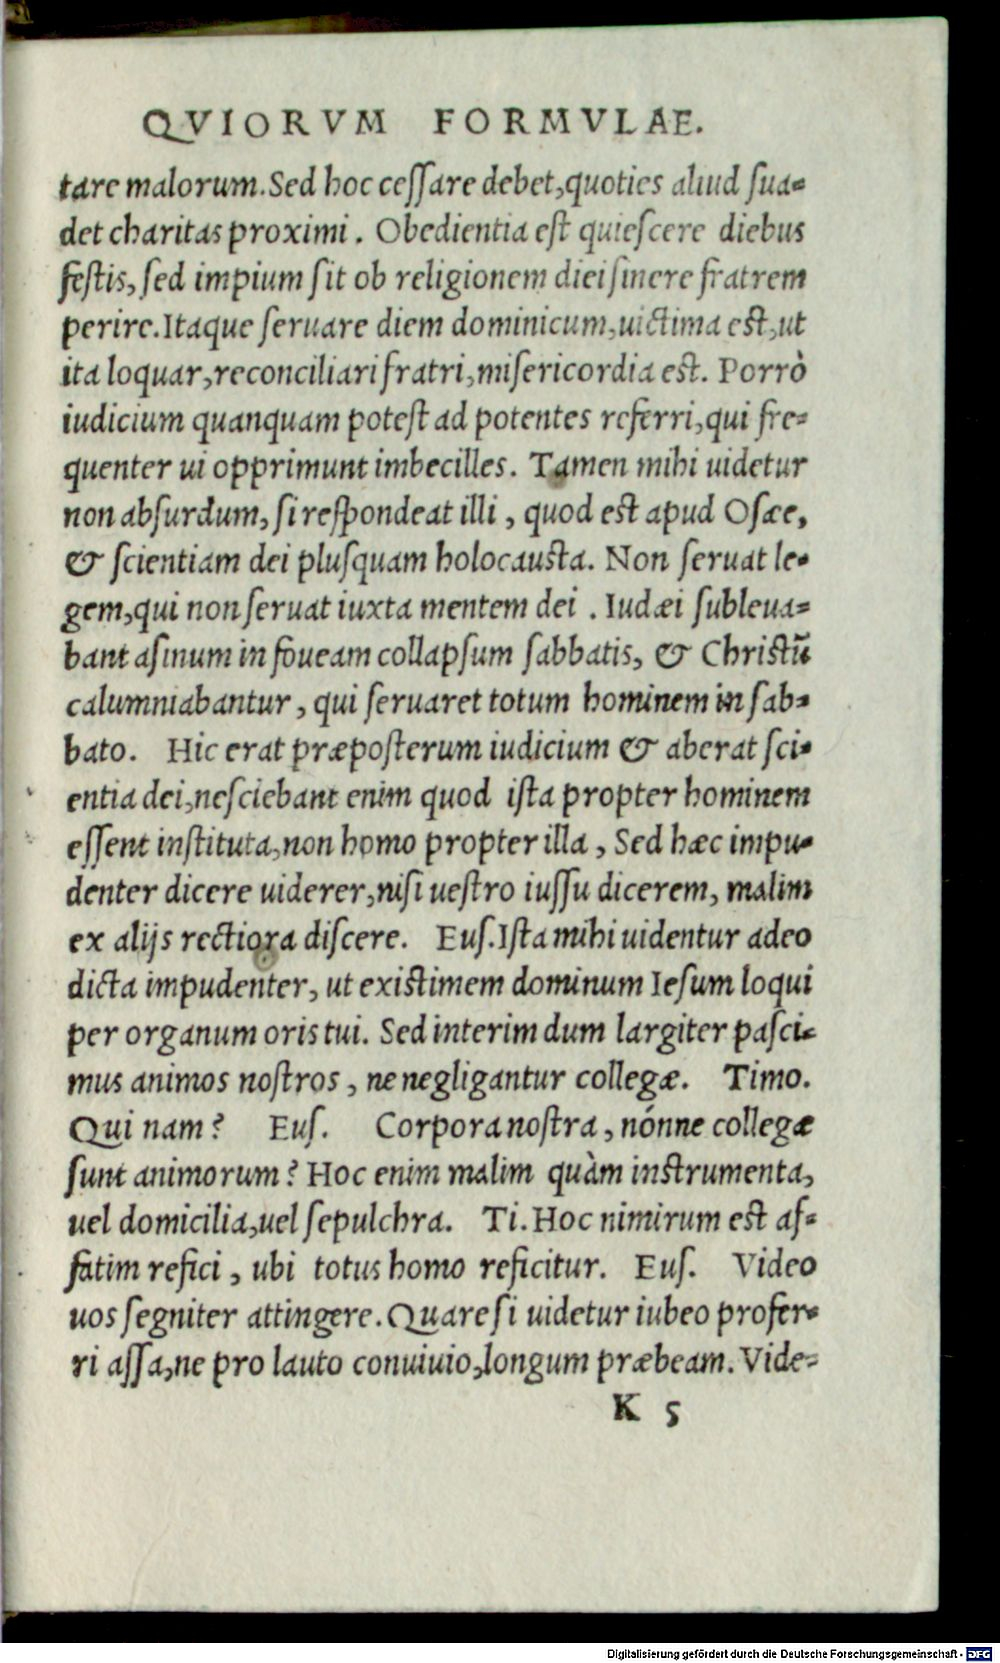 QVIORVM FORMVLAE.
tare malorum. Sed hoc ceſſare debet, quoties aliud ſua-
det charitas proximi. Obedientia eſt quieſcere diebus
feſtis, ſed impium ſit ob religionem diei ſinere fratrem
perire. Itaque ſeruare diem dominicum, uictima eſt, ut
ita loquar, reconciliari fratri, miſericordia eſt. Porrò
iudicium quanquam poteſt ad potentes referri, qui fre-
quenter ui opprimunt imbecilles. Tamen mihi uidetur
non abſurdum, ſi reſpondeat illi, quod eſt apud Oſæe,
& ſcientiam dei pluſquam holocauſta. Non ſeruat le-
gem, qui non ſeruat iuxta mentem dei. Iudæi ſubleua-
bant aſinum in foueam collapſum ſabbatis, & Chriſtū
calumniabantur, qui ſeruaret totum hominem in ſab-
bato. Hic erat præpoſterum iudicium & aberat ſci-
entia dei, neſciebant enim quod iſta propter hominem
eſſent inſtituta, non homo propter illa, Sed hæc impu-
denter dicere uiderer, niſi ueſtro iuſſu dicerem, malim
ex alijs rectiora diſcere. Euſ. Iſta mihi uidentur adeo
dicta impudenter, ut exiſtimem dominum Ieſum loqui
per organum oris tui. Sed interim dum largiter paſci-
mus animos noſtros, ne negligantur collegæ. Timo.
Qui nam? Euſ. Corpora noſtra, nónne collegæ
ſunt animorum? Hoc enim malim quàm inſtrumenta,
uel domicilia, uel ſepulchra. Ti. Hoc nimirum eſt af-
fatim refici, ubi totus homo reficitur. Euſ. Video
uos ſegniter attingere. Quare ſi uidetur iubeo profer-
ri aſſa, ne pro lauto conuiuio, longum præbeam. Vide-
K 5
Digitalisierung gefördert durch die Deutsche Forschungsgemeinschaft - DFG